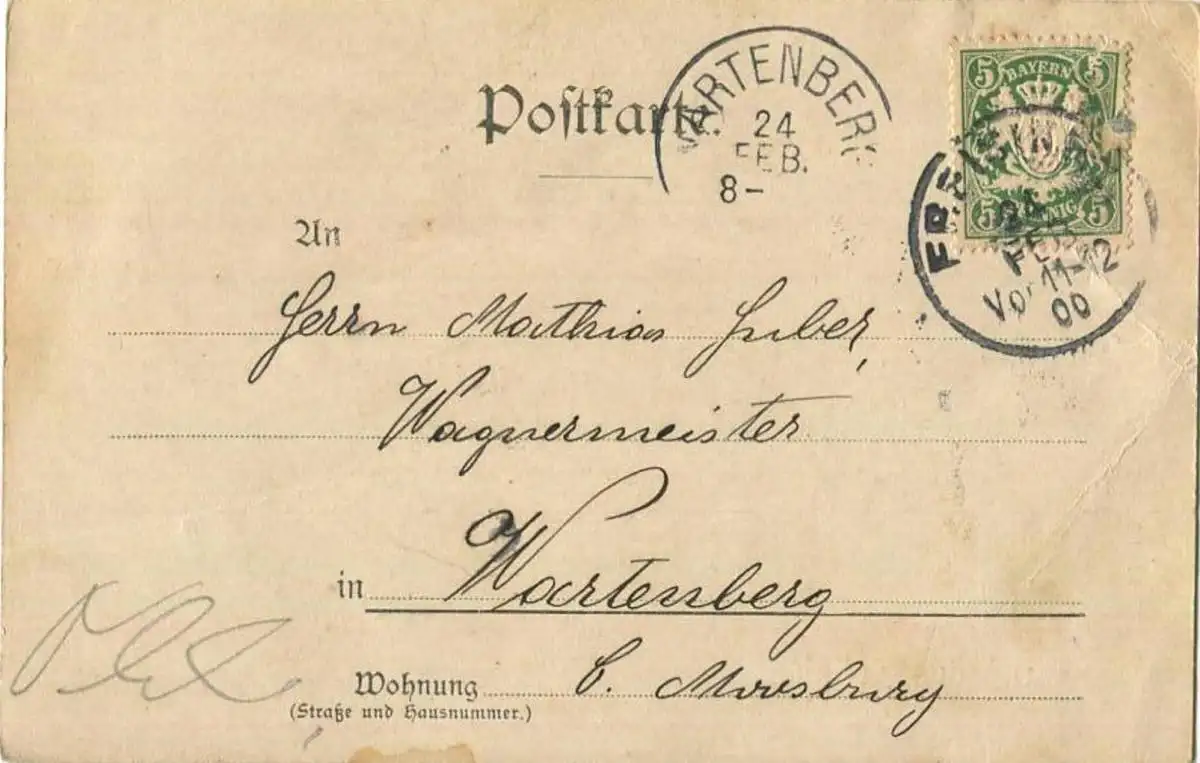 Postkarte.
WARTENBERG
24
FEB.
8-
5 BAYERN 5
5 5
24
FEB
Vor 11-12
00
An
Herrn Mathias Huber,
Wagnermeister
in Wartenberg
Wohnung b. Moosburg
(Straße und Hausnummer.)